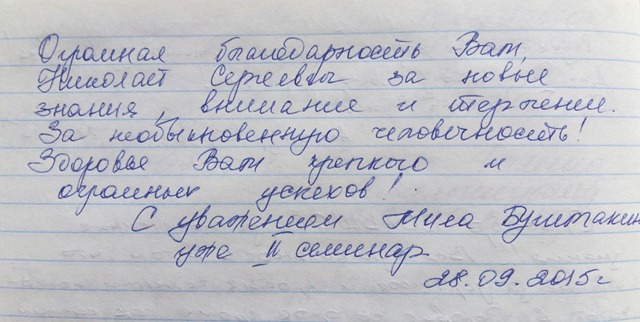 Огромная благодарность Вам,
Николай Сергеевич за новые
знания, внимание и терпение.
За необыкновенную человечность!
Здоровья Вам крепкого и
огромных успехов!
С уважением Мила
уже II семинар
28.09.2015г